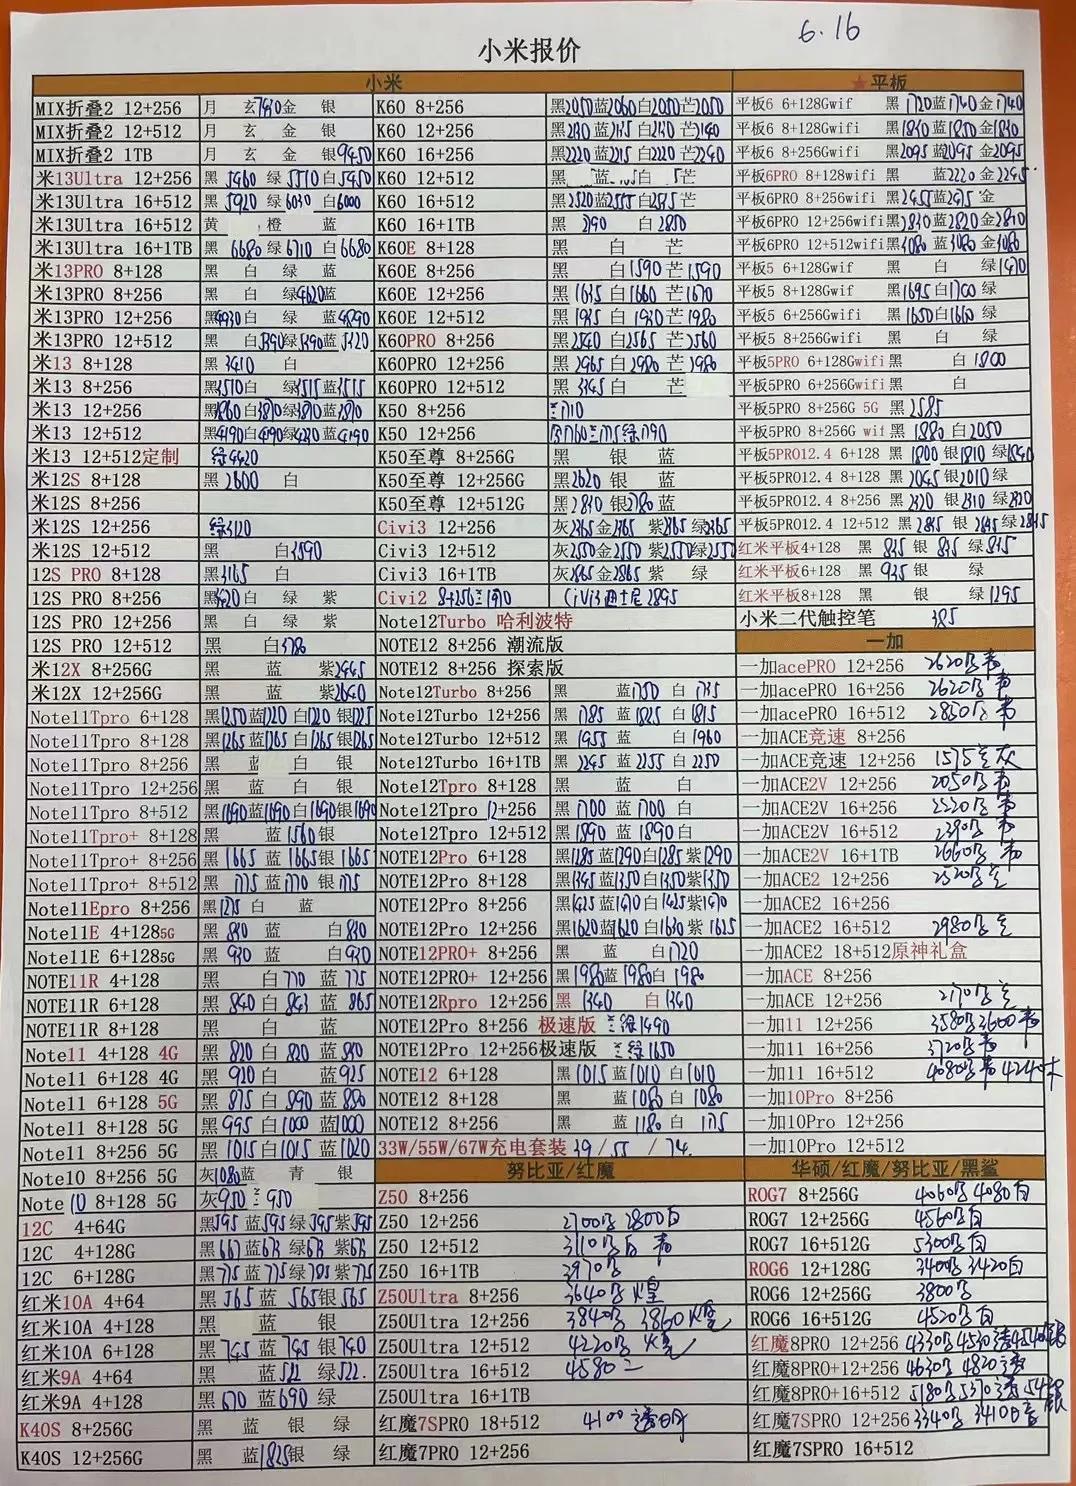 6.16
小米报价
小米
MIX折叠2 12+256 月 玄 金 银
MIX折叠2 12+512 月 玄 金 银
MIX折叠2 1TB 月 玄 金 银9450
米13Ultra 12+256 黑 5460 绿 5510 白5450
米13Ultra 16+512 黑 5920 绿 6030 白6000
米13Ultra 16+512 黄 橙 蓝
米13Ultra 16+1TB 黑 6680 绿6710 白6680
米13PRO 8+128 黑 白 绿 蓝
米13PRO 8+256 黑 白 绿4620蓝
米13PRO 12+256 黑4930白 绿 蓝4890
米13PRO 12+512 黑 白5390绿5390蓝5320
米13 8+128 黑 3410 白
米13 8+256 黑3510白 绿3515蓝3515
米13 12+256 黑3860白3870绿3870蓝3870
米13 12+512 黑4190白4190绿4230蓝4190
米13 12+512定制 绿4420
米12S 8+128 黑 2600 白
米12S 8+256
米12S 12+256 绿3120
米12S 12+512 黑 白3190
12S PRO 8+128 黑3165 白
12S PRO 8+256 黑3420白 绿 紫
12S PRO 12+256 黑 白 绿 紫
12S PRO 12+512 黑 白3780
米12X 8+256G 黑 蓝 紫2445
米12X 12+256G 黑 蓝 紫2640
Note11Tpro 6+128 黑1250蓝1220 白1220 银1225
Note11Tpro 8+128 黑1265蓝1265 白1265 银1265
Note11Tpro 8+256 黑 蓝 白 银
Note11Tpro 12+256 黑 蓝 白 银
Note11Tpro 8+512 黑1690蓝1690白1690银1690
Note11Tpro+ 8+128 黑 蓝1560银
Note11Tpro+ 8+256 黑 1665 蓝 1665银 1665
Note11Tpro+ 8+512 黑 1775 蓝1770 银 1775
Note11Epro 8+256 黑1275白 蓝
Note11E 4+1285G 黑 810 蓝 白810
Note11E 6+1285G 黑 930 蓝 白930
NOTE11R 4+128 黑 白770 蓝 775
NOTE11R 6+128 黑 840 白 843 蓝 865
NOTE11R 8+128 黑 白 蓝
Note11 4+128 4G 黑 820 白 820 蓝 840
Note11 6+128 4G 黑 920白 蓝925
Note11 6+128 5G 黑 875 白 890 蓝 880
Note11 8+128 5G 黑 995 白1000 蓝1000
Note11 8+256 5G 黑 1015 白1015 蓝1020
Note10 8+256 5G 灰1080蓝 青 银
Note 10 8+128 5G 灰950 兰 950
12C 4+64G 黑595 蓝595 绿595紫595
12C 4+128G 黑667蓝673 绿673 紫673
12C 6+128G 黑775 蓝775绿785紫775
红米10A 4+64 黑 565 蓝 565银565
红米10A 4+128 黑 蓝 银
红米10A 6+128 黑 745 蓝 745 银740
红米9A 4+64 黑 蓝522 绿522
红米9A 4+128 黑 670 蓝690 绿
K40S 8+256G 黑 蓝 银 绿
K40S 12+256G 黑 蓝1825银 绿
K60 8+256 黑2050蓝2060白2050芒2050
K60 12+256 黑2130蓝2135白2130芒2140
K60 16+256 黑2220蓝2215白2220芒2240
K60 12+512 黑 蓝 白 芒
K60 16+512 黑2520蓝2555白2575芒
K60 16+1TB 黑 2790 白 2850
K60E 8+128 黑 白 芒
K60E 8+256 黑 白1590 芒1590
K60E 12+256 黑 1635 白1660 芒1670
K60E 12+512 黑 1935 白 1930芒1980
K60PRO 8+256 黑2540 白2565 芒2560
K60PRO 12+256 黑 2965 白 2980 芒2980
K60PRO 12+512 黑 3345 白 芒
K50 8+256 兰1710
K50 12+256
K50至尊 8+256G 黑 银 蓝
K50至尊 12+256G 黑2620 银 蓝
K50至尊 12+512G 黑2810 银2780 蓝
Civi3 12+256 灰2365金2365 紫2365 绿2365
Civi3 12+512 灰2550金2550 紫2550绿2550
Civi3 16+1TB 灰2865金2865 紫 绿
Civi2 8+256兰1910 Civi3迪士尼2895
Note12Turbo 哈利波特
NOTE12 8+256 潮流版
NOTE12 8+256 探索版
Note12Turbo 8+256 黑 蓝1750 白 1735
Note12Turbo 12+256 黑 1785 蓝 1825 白 1815
Note12Turbo 12+512 黑 1955 蓝 白 1960
Note12Turbo 16+1TB 黑 2245 蓝 2255 白 2250
Note12Tpro 8+128 黑 蓝 白
Note12Tpro 12+256 黑 1700 蓝 1700 白
Note12Tpro 12+512 黑1890 蓝 1890白
NOTE12Pro 6+128 黑1285蓝1290白1285紫1290
NOTE12Pro 8+128 黑1345蓝1350白1350紫1350
NOTE12Pro 8+256 黑1425蓝1470白1425紫1470
NOTE12Pro 12+256 黑1620蓝1620白1630 紫1625
NOTE12PRO+ 8+256 黑 蓝 白1720
NOTE12PRO+ 12+256 黑1980蓝1980白 1980
NOTE12Rpro 12+256 黑 1340 白1340
NOTE12Pro 8+256 极速版 兰绿1490
NOTE12Pro 12+256极速版 兰绿1650
NOTE12 6+128 黑1015 蓝1010 白1010
NOTE12 8+128 黑 蓝1080 白 1080
NOTE12 8+256 黑 蓝1180 白 1175
33W/55W/67W充电套装 39 / 55 / 74.
努比亚/红魔
Z50 8+256
Z50 12+256 2700 2800白
Z50 12+512
Z50 16+1TB
Z50Ultra 8+256 3640 煌
Z50Ultra 12+256 3840 3860煌
Z50Ultra 12+512 4220 煌
Z50Ultra 16+512 4580
Z50Ultra 16+1TB
红魔7SPRO 18+512 4100 透明
红魔7PRO 12+256
★平板
平板6 6+128Gwif 黑 1720蓝1740金1740
平板6 8+128Gwifi 黑1830 蓝1850 金1830
平板6 8+256Gwifi 黑2095蓝2095金2095
平板6PRO 8+128wifi 黑 蓝2220 金2245
平板6PRO 8+256wifi 黑2455蓝2475 金
平板6PRO 12+256wifi 黑2830 蓝2820 金2810
平板6PRO 12+512wifi 黑3080 蓝3080 金3080
平板5 6+128Gwif 黑 白 绿1470
平板5 8+128Gwif 黑1695白1700 绿
平板5 6+256Gwif 黑1650白1660 绿
平板5 8+256Gwif 黑 白 绿
平板5PRO 6+128Gwifi 黑 白 1800
平板5PRO 6+256Gwifi 黑 白
平板5PRO 8+256G 5G 黑 2585
平板5PRO 8+256G wif 黑 1880 白2050
平板5PRO12.4 6+128 黑 1800 银1810 绿1840
平板5PRO12.4 8+128 黑 2045 银2010 绿
平板5PRO12.4 8+256 黑 2320 银2310 绿2320
平板5PRO12.4 12+512 黑 2845 银 2845 绿2845
红米平板4+128 黑 835 银 835 绿835
红米平板6+128 黑 935 银 绿
红米平板8+128 黑 银 绿1295
小米二代触控笔 385
一加
一加acePRO 12+256
一加acePRO 16+256
一加acePRO 16+512
一加ACE竞速 8+256
一加ACE竞速 12+256 1575
一加ACE2V 12+256
一加ACE2V 16+256
一加ACE2V 16+512
一加ACE2V 16+1TB
一加ACE2 12+256
一加ACE2 16+256
一加ACE2 16+512
一加ACE2 18+512原神礼盒
一加ACE 8+256
一加ACE 12+256
一加11 12+256
一加11 16+256
一加11 16+512
一加10Pro 8+256
一加10Pro 12+256
一加10Pro 12+512
华硕/红魔/努比亚/黑鲨
ROG7 8+256G 4060 4080白
ROG7 12+256G 4560白
ROG7 16+512G 5300白
ROG6 12+128G 3400 3420白
ROG6 12+256G 3800
ROG6 16+512G 4520白
红魔8PRO 12+256
红魔8PRO+12+256 4630 4820透
红魔8PRO+16+512
红魔7SPRO 12+256
红魔7SPRO 16+512